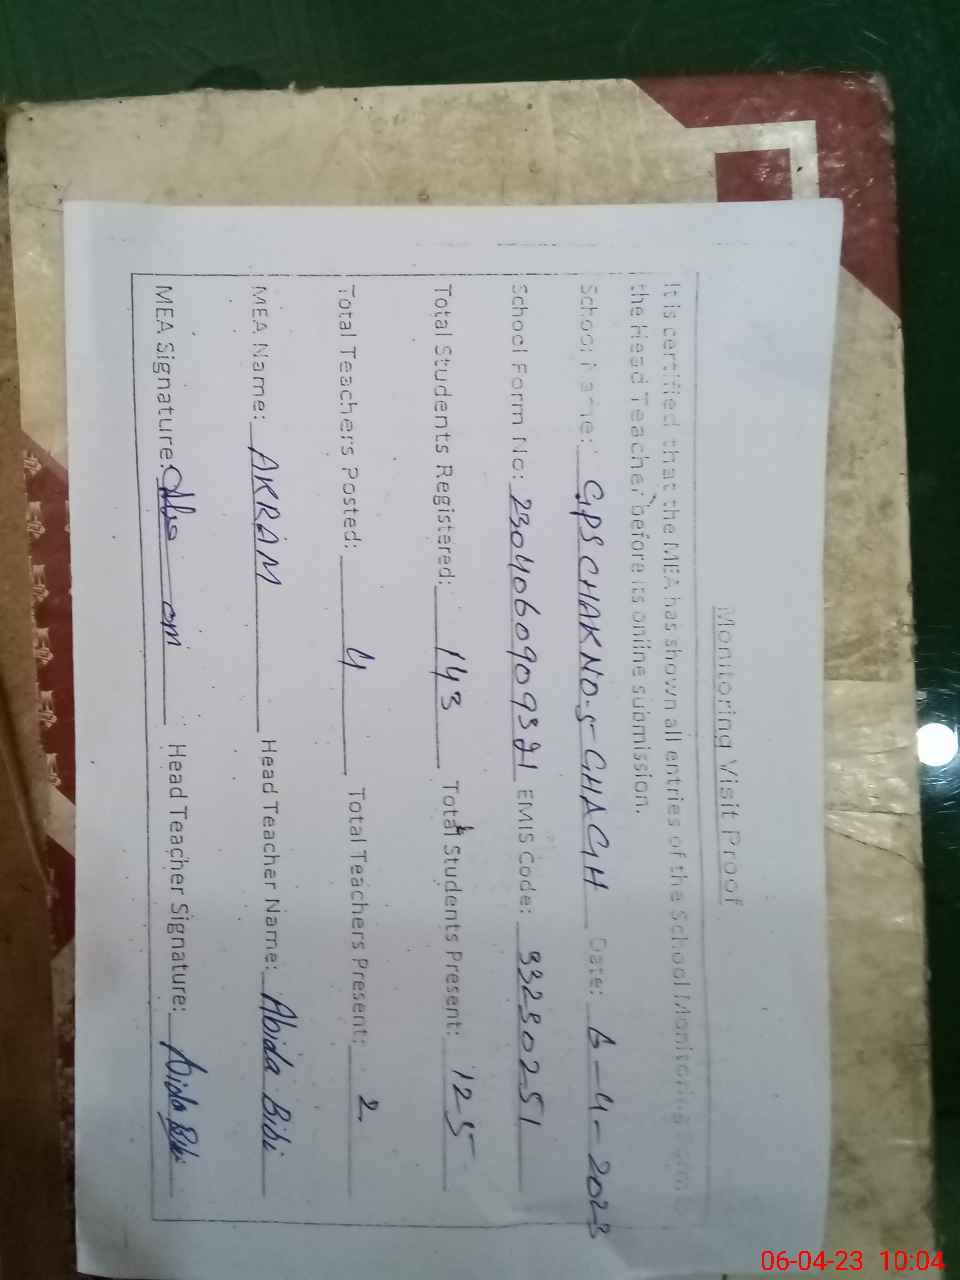 Monitoring Visit Proof
It is certified that the MEA has shown all entries of the School Monitoring Form to
the Head Teacher before its online submission.
School Name: GPS CHAK NO.5 GHAGH Date: 6-4-2023
School Form No: EMIS Code: 33230251
Total Students Registered: 143 Total Students Present: 125
Total Teachers Posted: 4 Total Teachers Present: 2
MEA Name: AKRAM Head Teacher Name: Abida Bibi
MEA Signature: Head Teacher Signature: Abida Bibi
06-04-23 10:04